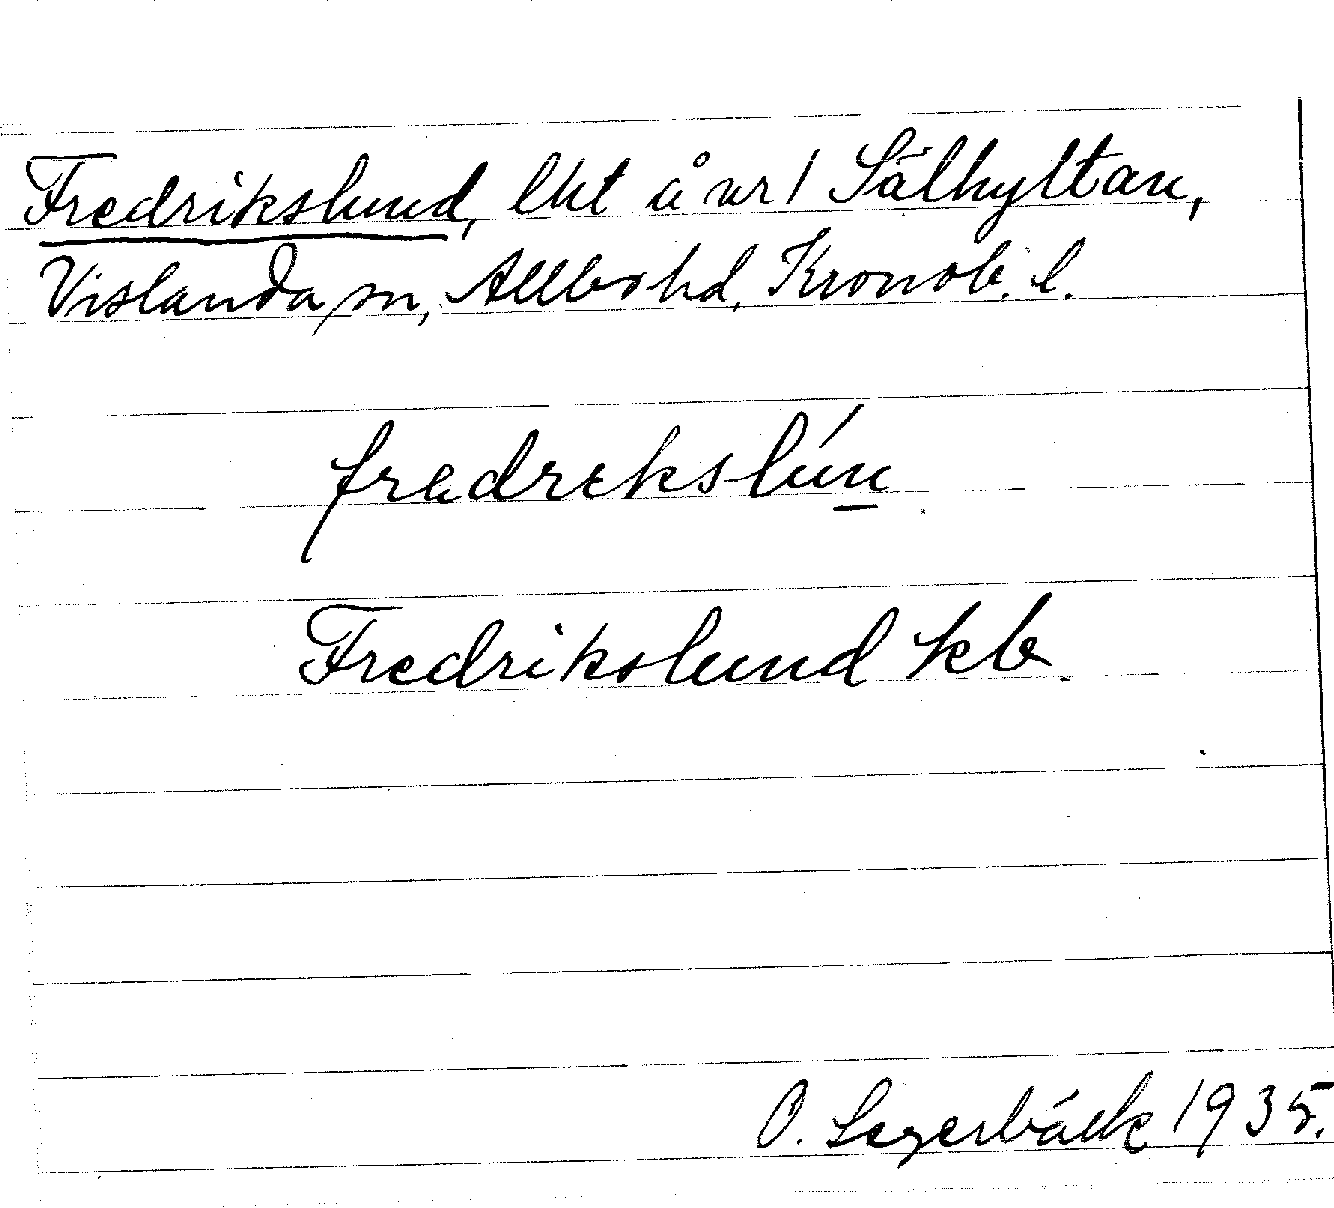 Fredrikslund, lht å nr 1 Sälhyltan,
Vislanda sn, Allbo hd, Kronob. l.
fredrekslún
Fredrikslund kb.
O. Segerbäck 1935.